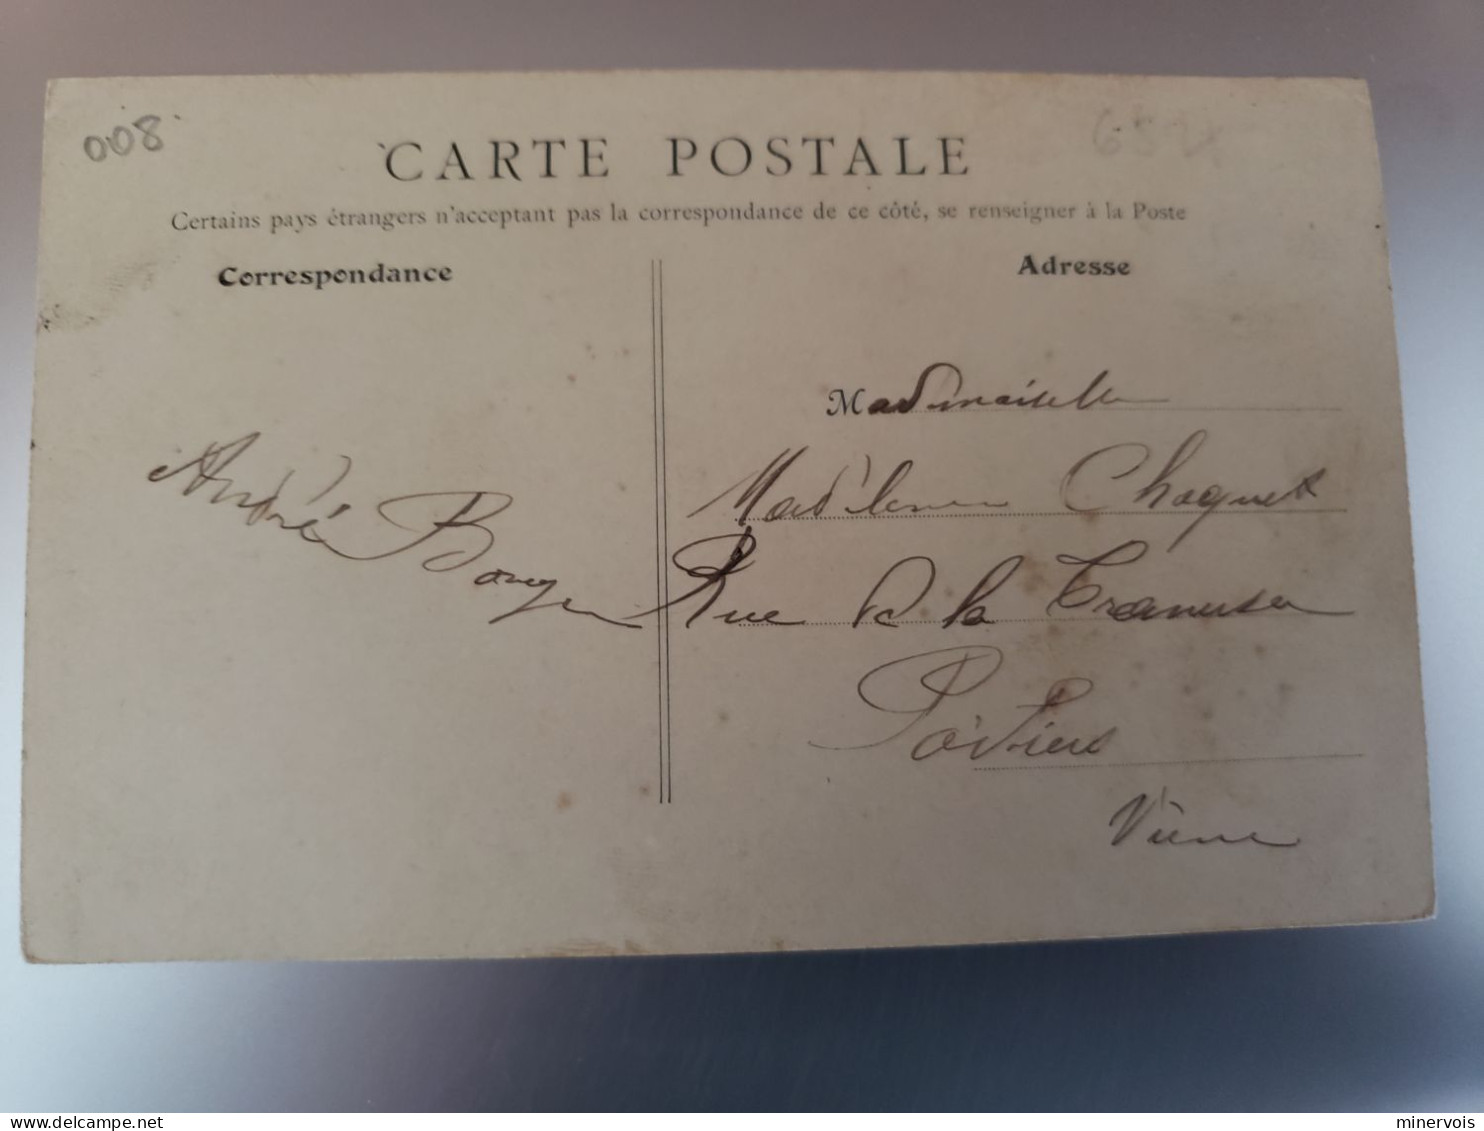 008
CARTE POSTALE
Certains pays étrangers n'acceptant pas la correspondance de ce côté, se renseigner à la Poste
Correspondance
Adresse
Mademoiselle
Madeleine Choquet
André
Rue de la
Poitiers
Vienne
delcampe.net
minervois